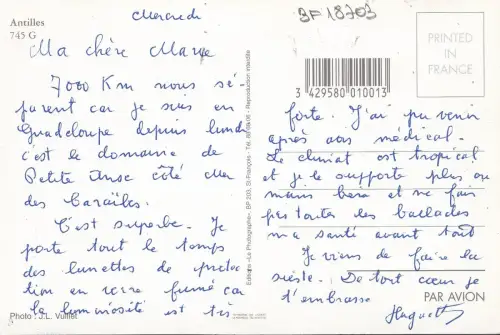 Antilles
745 G
Mercredi
3F 18703
PRINTED
IN
FRANCE
Ma chère
7000 Km nous sé
parent car je suis en
Guadeloupe depuis lundi
c'est le domaine de
Petite Anse côté Mer
des Caraïbes.
C'est superbe. Je
porte tout le temps
des lunettes de protec
tion en verre fumé car
la luminosité est très
Photo : J.L. Vuillet
Editions «La Photographie», BP 203, St-François - Tél. - Reproduction interdite
3 429580 010013
forte. J'ai pu venir
après avis médical.
Le climat est tropical
et je le supporte plus ou
moins bien et ne fais
pas toutes les ballades
ma santé avant tout
Je viens de faire la
sieste. De tout cœur je
t'embrasse
Huguette
PAR AVION